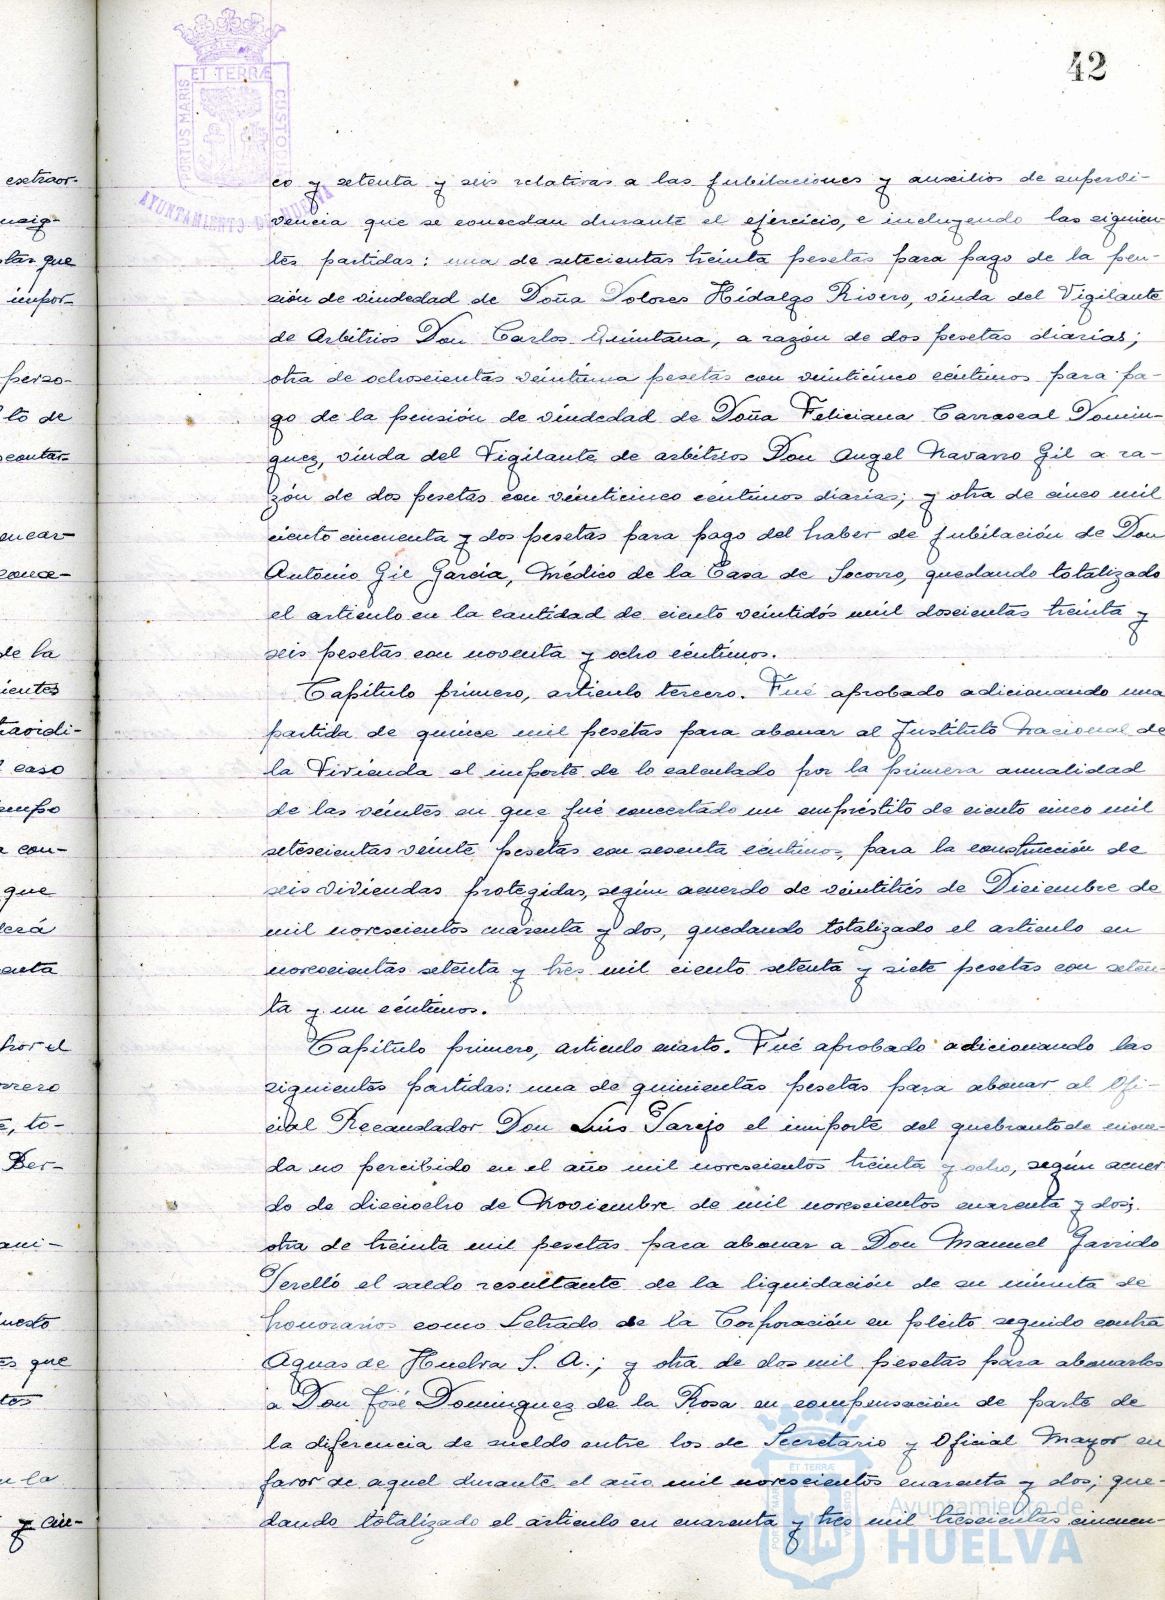 42
ET TERRÆ
PORTUS MARIS
CUSTODIA
AYUNTAMIENTO DE HUELVA
extraor-
que
impor-
perso-
to de
contar-
encar-
conce-
de la
cientes
traordi-
caso
empo
con-
que
cuenta
por el
to-
Ber-
que
la
y cin-
co y setenta y seis relativas a las jubilaciones y auxilios de supervi-
vencia que se concedan durante el ejercicio, e incluyendo las siguien-
tes partidas: una de setecientas treinta pesetas para pago de la pen-
sión de viudedad de Doña Dolores Hidalgo Rivero, viuda del Vigilante
de Arbitrios Don Carlos Quintana, a razón de dos pesetas diarias;
otra de ochoscientas veintiuna pesetas con veinticinco céntimos para pa-
go de la pensión de viudedad de Doña Feliciana Carrascal Domin-
guez, viuda del Vigilante de arbitrios Don Angel Navarro Gil a ra-
zón de dos pesetas con veinticinco céntimos diarias; y otra de cinco mil
ciento cincuenta y dos pesetas para pago del haber de jubilación de Don
Antonio Gil García, Médico de la Casa de Socorro, quedando totalizado
el artículo en la cantidad de ciento veintidós mil doscientas treinta y
seis pesetas con noventa y ocho céntimos.
Capítulo primero, artículo tercero. Fué aprobado adicionando una
partida de quince mil pesetas para abonar al Instituto Nacional de
la Vivienda el importe de lo calculado por la primera anualidad
de las veintes en que fué concertado un empréstito de ciento cinco mil
setescientas veinte pesetas con sesenta céntimos, para la construcción de
seis viviendas protegidas, según acuerdo de veintitrés de Diciembre de
mil novescientos cuarenta y dos, quedando totalizado el artículo en
novescientas setenta y tres mil ciento setenta y siete pesetas con seten-
ta y un céntimos.
Capítulo primero, artículo cuarto. Fué aprobado adicionando las
siguientes partidas: una de quinientas pesetas para abonar al Ofi-
cial Recaudador Don Luis Tarejo el importe del quebranto de mone-
da no percibido en el año mil novescientos treinta y ocho, según acuer
do de dieciocho de Noviembre de mil novescientos cuarenta y dos;
otra de treinta mil pesetas para abonar a Don Manuel Garrido
Perelló el saldo resultante de la liquidación de su minuta de
honorarios como Letrado de la Corporación en pleito seguido contra
Aguas de Huelva S. A.; y otra de dos mil pesetas para abonarlos
a Don José Dominguez de la Rosa en compensación de parte de
la diferencia de sueldo entre los de Secretario y Oficial Mayor en
favor de aquel durante el año mil novescientos cuarenta y dos; que-
dando totalizado el artículo en cuarenta y tres mil trescientas cincuen-
Ayuntamiento de
HUELVA